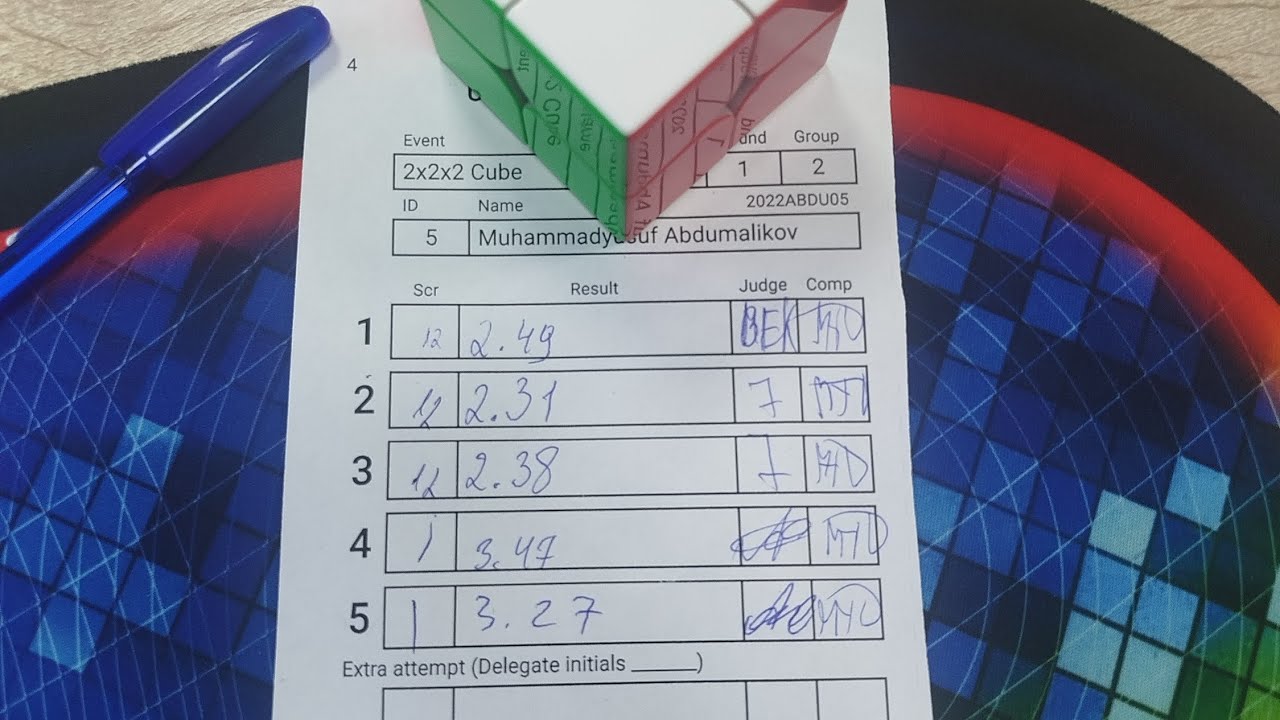 4
Event and Group
2x2x2 Cube 1 2
ID Name 2022ABDU05
5 Muhammadyusuf Abdumalikov
Scr Result Judge Comp
1 12 2.49 BEK
2 12 2.31 7
3 12 2.38 7
4 1 3.47
5 1 3.27
Extra attempt (Delegate initials ______)